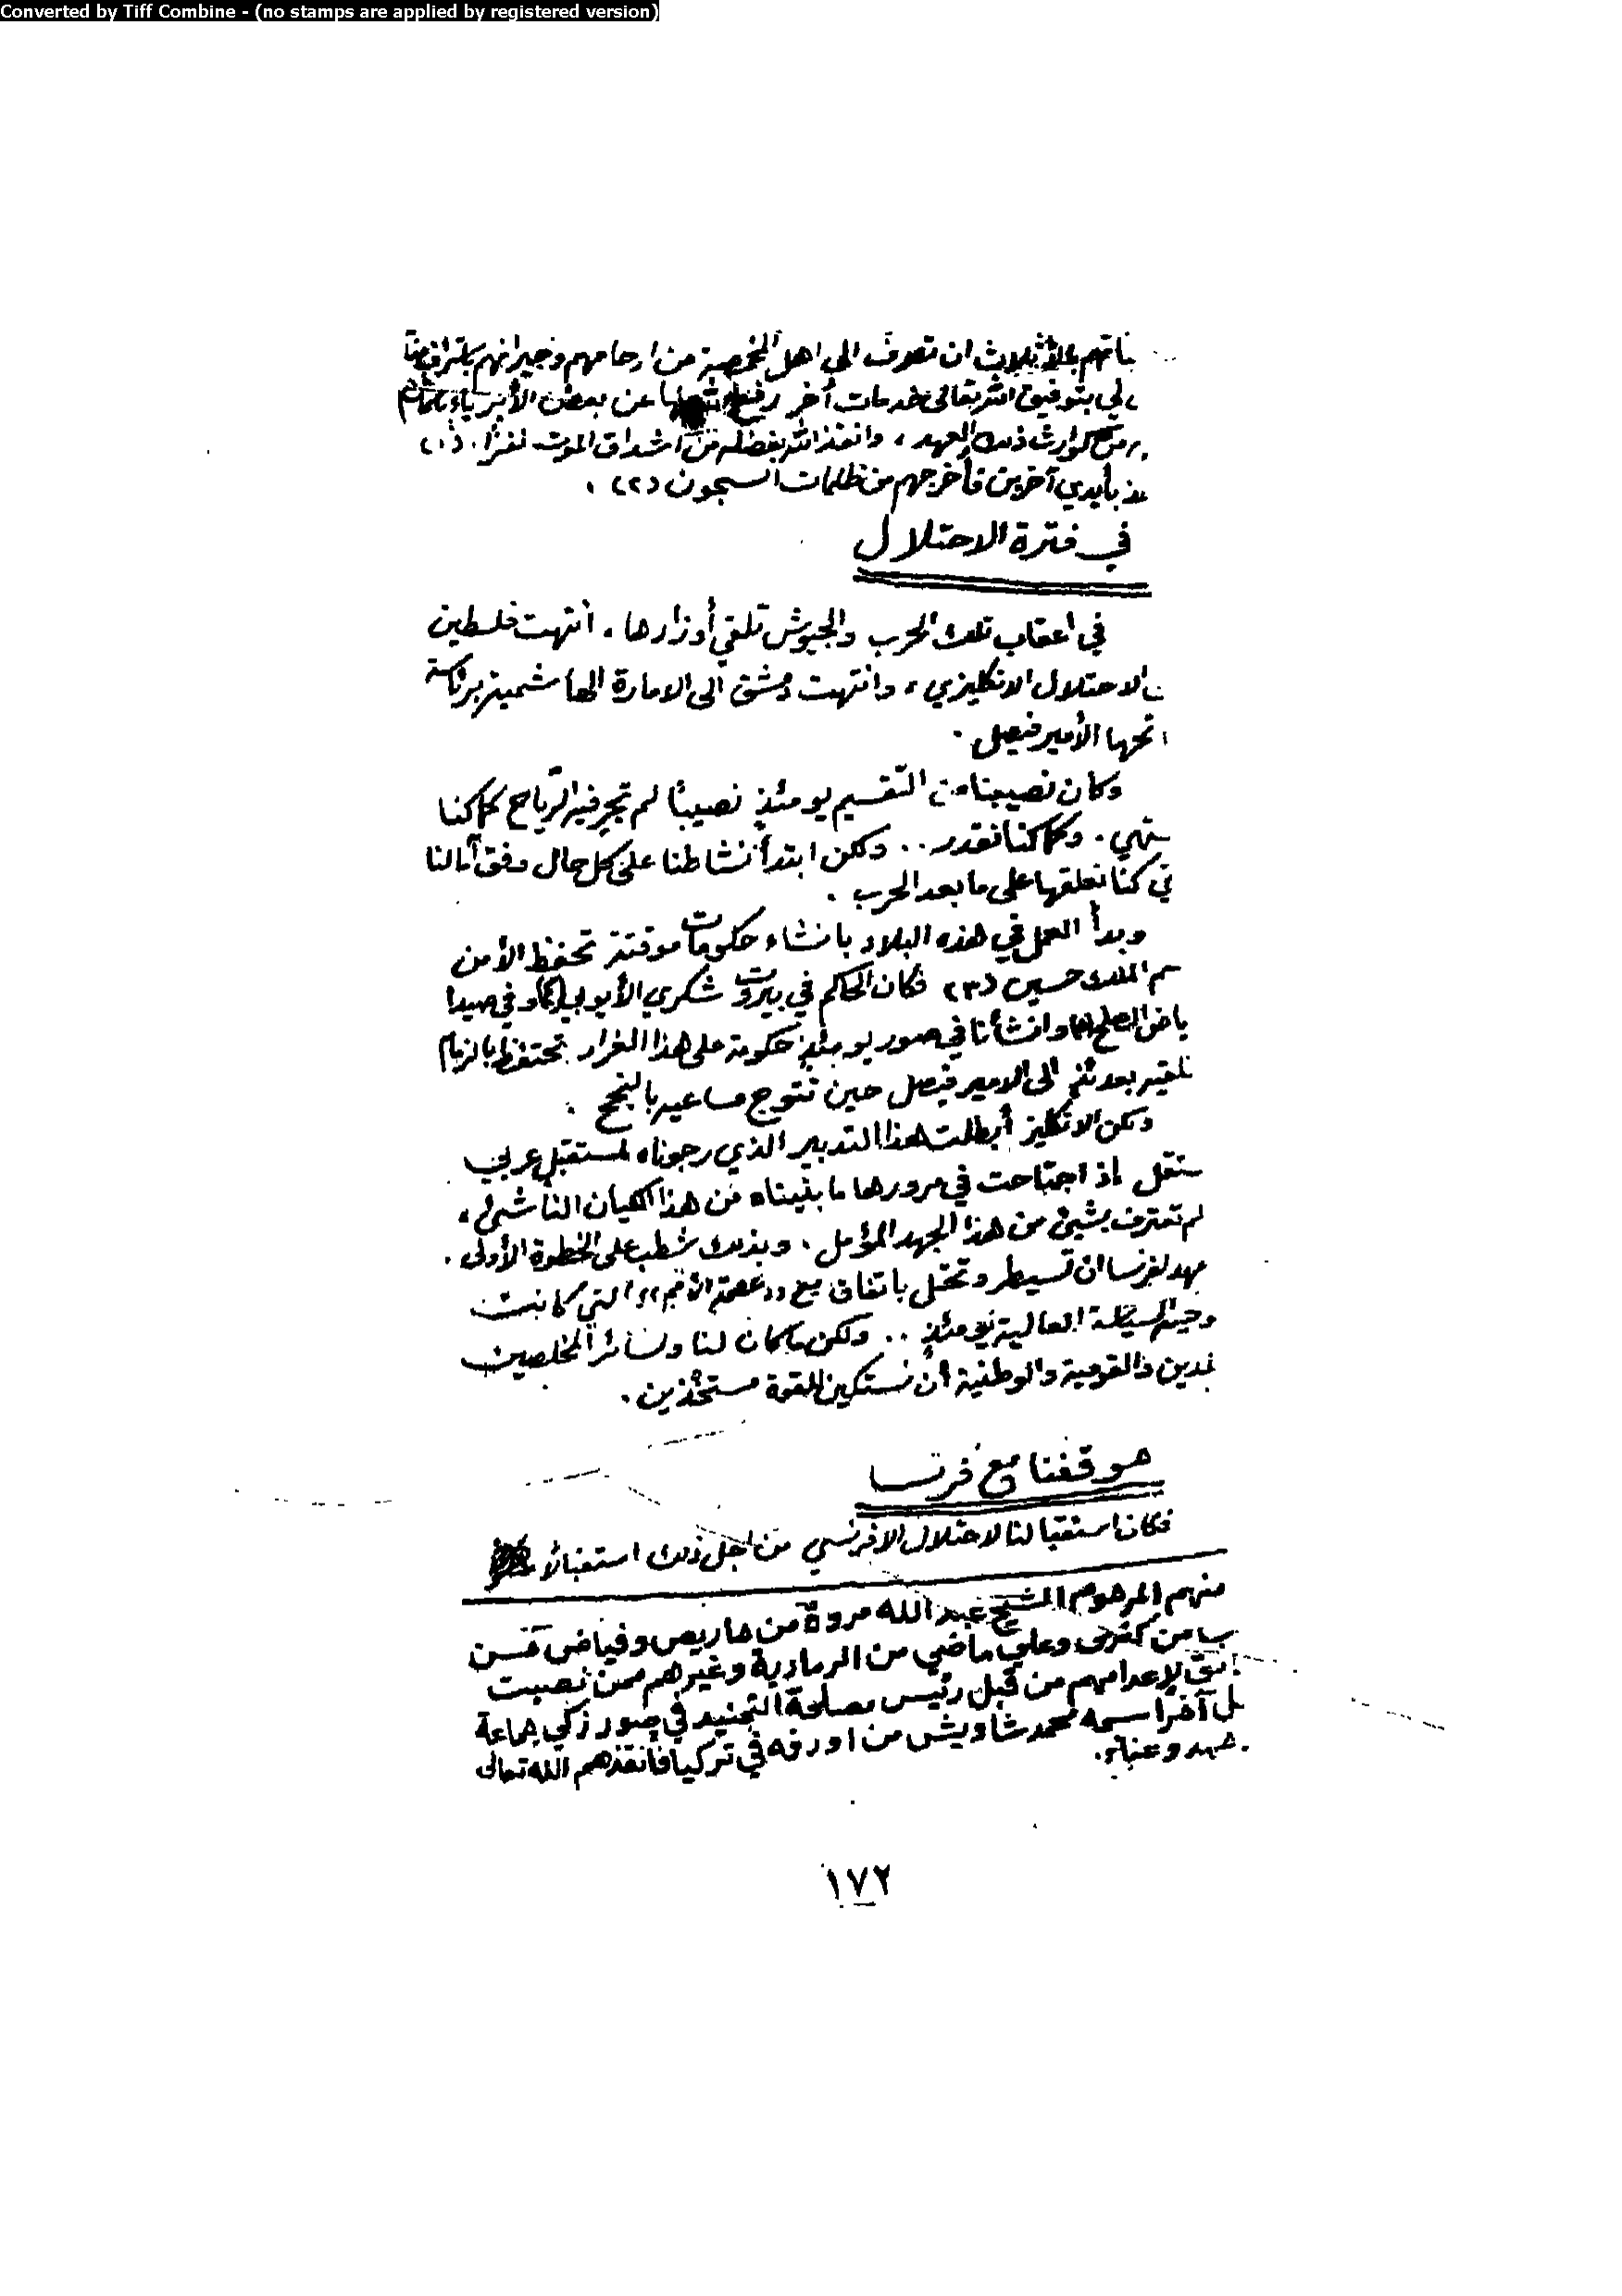 Converted by Tiff Combine - (no stamps are applied by registered version)
ان تعرف الى اهل المخمصة من ارحامهم وجيرانهم
لي بتوفيق الله تعالى خدمات أخر عن بعض الأبرياء
ذلك العهد، وانقذ الله بفضله من اشداق الموت نفراً. (١)
بأيدي آخرين فأخرجهم من ظلمات السجون (٢).
في فترة الاحتلال
في اعقاب تلك الحرب والجيوش تلقي أوزارها. انتهت فلسطين
الاحتلال الانكليزي، وانتهت دمشق الى الامارة الهاشمية برئاسة
الأمير فيصل.
وكان نصيبنا من التقسيم يومئذٍ نصيبًا لم تجرِ فيه الرّياح كما كنا
وكما كنا نقدر.. ولكن ابتدأ نشاطنا على كل حال وفق آمالنا
كنا نعلقها على ما بعد الحرب.
وبدأ العمل في هذه البلاد بانشاء حكومات موقتة تحفظ الأمن
الملك حسين (٣) فكان الحاكم في بيروت شكري الأيوبي وفي صيدا
الصلح وانشأنا في صور يومئذٍ حكومة على هذا الغرار تحتفظ بالزمام
بعدئذٍ الى الامير فيصل حين تتوج مساعيه بالنجح.
ولكن الانكليز أبطلت هذا التدبير الذي رجوناه لمستقبل عربي
اذ اجتاحت في مرورها ما بنيناه من هذا الكيان الناشئ،
لم تعترف بشيئ من هذا الجهد المؤمل، وبذلك شطب على الخطوة الأولى.
لفرنسا ان تسيطر وتحتل باتفاق مع ((عصبة الأمم)) التي كانت
العالية يومئذٍ.. ولكن ما كان لنا ولسائر المخلصين
القومية والوطنية أن نستكين للقوة مستخذين.
موقفنا مع فرنسا
فكان استقبالنا لاحتلال الافرنسي من اجل ذلك استقبالاً
منهم المرحوم الشيخ عبد الله مروة من حاريص وفياض
من كفرى وعلي ماضي من الرمادية وغيرهم ممن نصبت
لإعدامهم من قبل رئيس مصلحة التجنيد في صور زكي جماعة
آخر اسمه محمد شاويش من اورفه في تركيا فانقذهم الله تعالى
جهد وعناء.
١٧٢